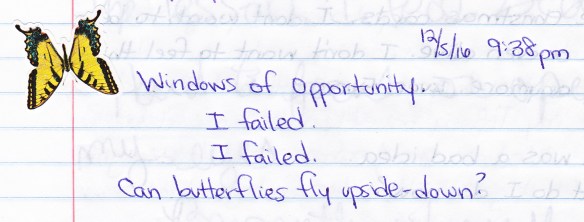 12/5/16 9:38pm
Windows of Opportunity.
I failed.
I failed.
Can butterflies fly upside-down?